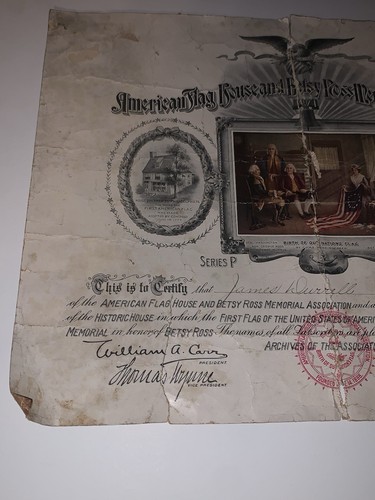 American Flag House and Betsy Ross Me
BIRTH OF OUR NATION'S FLAG
SERIES P
This is to Certify that James Durrell
of the AMERICAN FLAG HOUSE AND BETSY ROSS MEMORIAL ASSOCIATION and a
of the HISTORIC HOUSE in which the FIRST FLAG OF THE UNITED STATES OF AMERI
MEMORIAL in honor of BETSY ROSS The names of all Subscribers are pla
ARCHIVES OF THE ASSOCIAT
William A. Carr
PRESIDENT
Thomas Wynne
VICE PRESIDENT